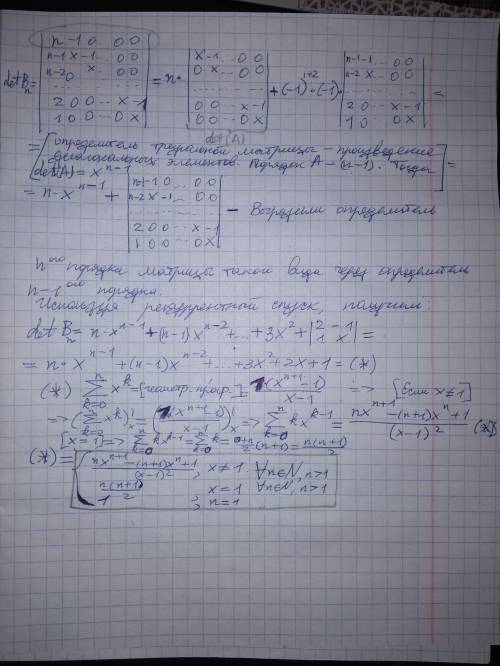 det B_n = | n -1 0 . 0 0 ; n-1 x -1 ... 0 0 ; n-2 0 x ... 0 0 ; ... ; 2 0 0 ... x -1 ; 1 0 0 ... 0 x | = n · | x -1 ... 0 0 ; 0 x ... 0 0 ; ... ; 0 0 ... x -1 ; 0 0 ... 0 x | + (-1)^{1+2} · (-1) · | n-1 -1 ... 0 0 ; n-2 x ... 0 0 ; ... ; 2 0 ... x -1 ; 1 0 0 x | =
det(A)
= [определитель треугольной матрицы – произведение
диагональных элементов. Порядок A – (n-1). Тогда
det(A) = x^{n-1}] =
= n·x^{n-1} + | n-1 -1 0 . 0 0 ; n-2 x -1 ... 0 0 ; ... ; 2 0 0 ... x -1 ; 1 0 0 ... 0 x | – Выразили определитель
n^{ого} порядка матрицы такого вида через определитель
n-1^{ого} порядка.
Используя рекуррентный спуск, получим:
det B_n = n·x^{n-1} + (n-1)x^{n-2} + ... + 3x^2 + | 2 -1 ; 1 x | =
= n·x^{n-1} + (n-1)x^{n-2} + ... + 3x^2 + 2x + 1 = (*)
(*) ∑_{k=0}^{n} x^k = [геометр. прогр.] = 1(x^{n+1}-1)/(x-1) => [Если x≠1]
=> (∑_{k=0}^{n} x^k)'_x = (1(x^{n+1}-1)/(x-1))'_x => ∑_{k=0}^{n} kx^{k-1} = (nx^{n+1}-(n+1)x^n+1)/(x-1)^2 (*)
[x=1] => ∑_{k=0}^{n} kx^{k-1} = ∑_{k=0}^{n} k = (0+n)/2 (n+1) = n(n+1)/2
(*) = { (nx^{n+1}-(n+1)x^n+1)/(x-1)^2 , x≠1 ∀n∈N, n>1
n(n+1)/2 , x=1 ∀n∈N, n>1
1 ; n=1